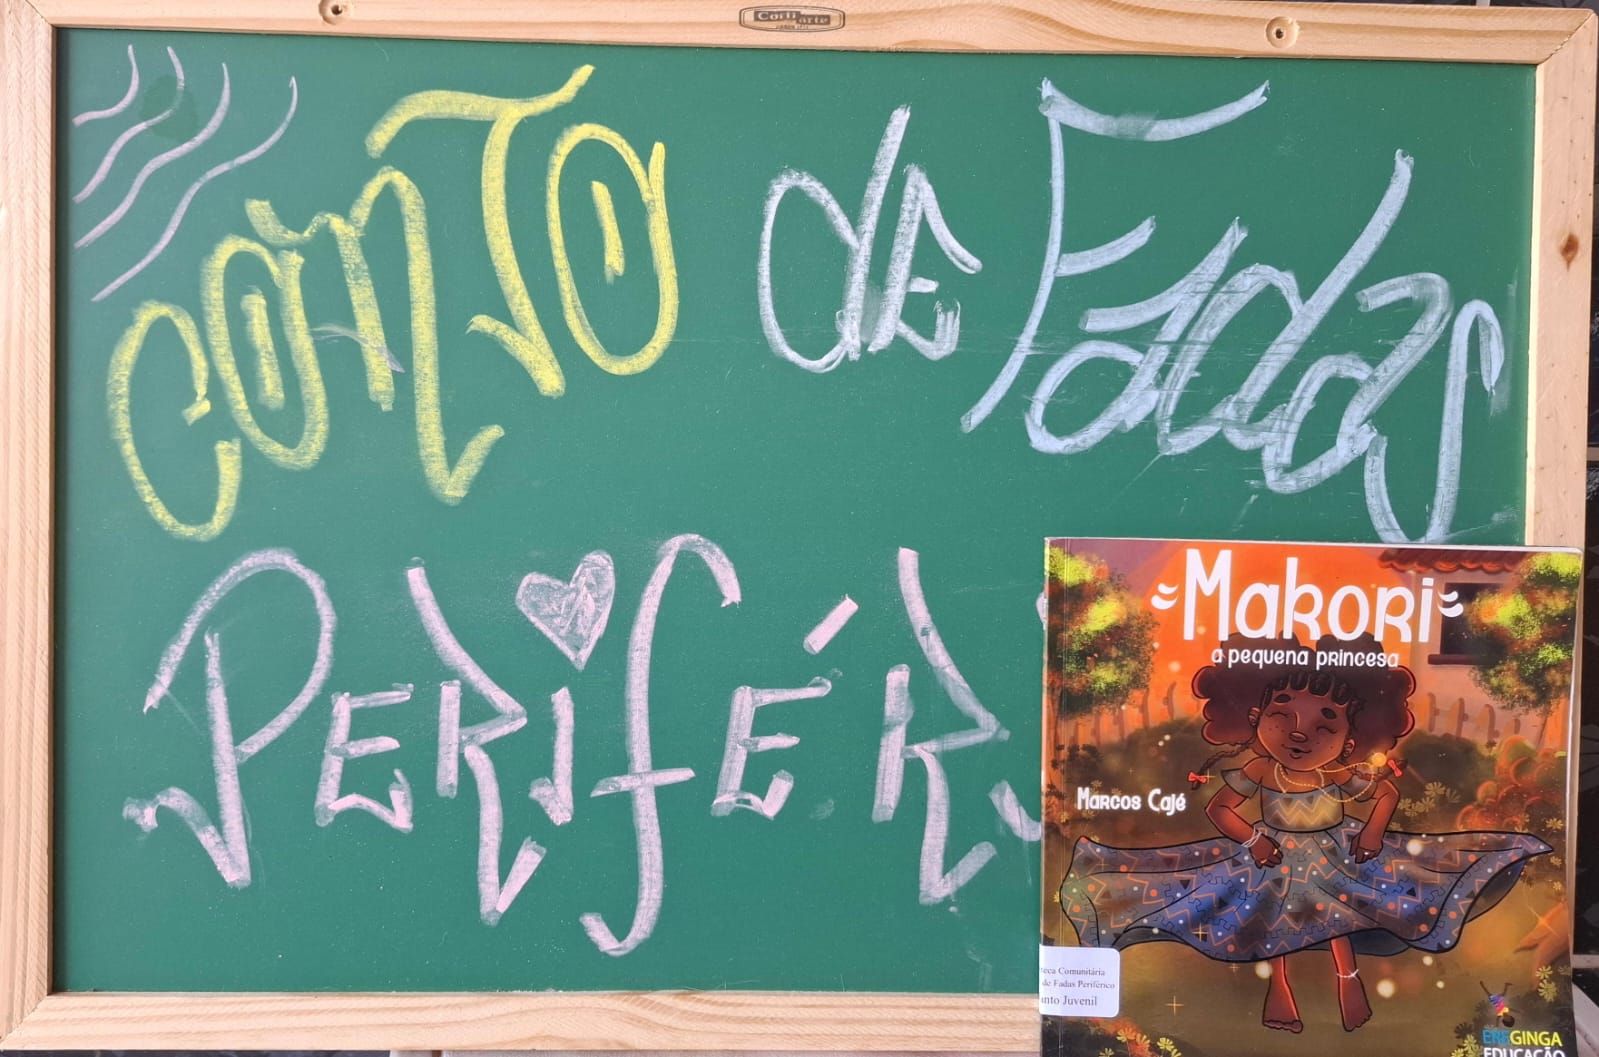 Corti arte
CONTO de Fadas
PERIFÉR
Makori
a pequena princesa
Marcos Cajé
teca Comunitária
de Fadas Periférico
anto Juvenil
EREGINGA
EDUCAÇÃO